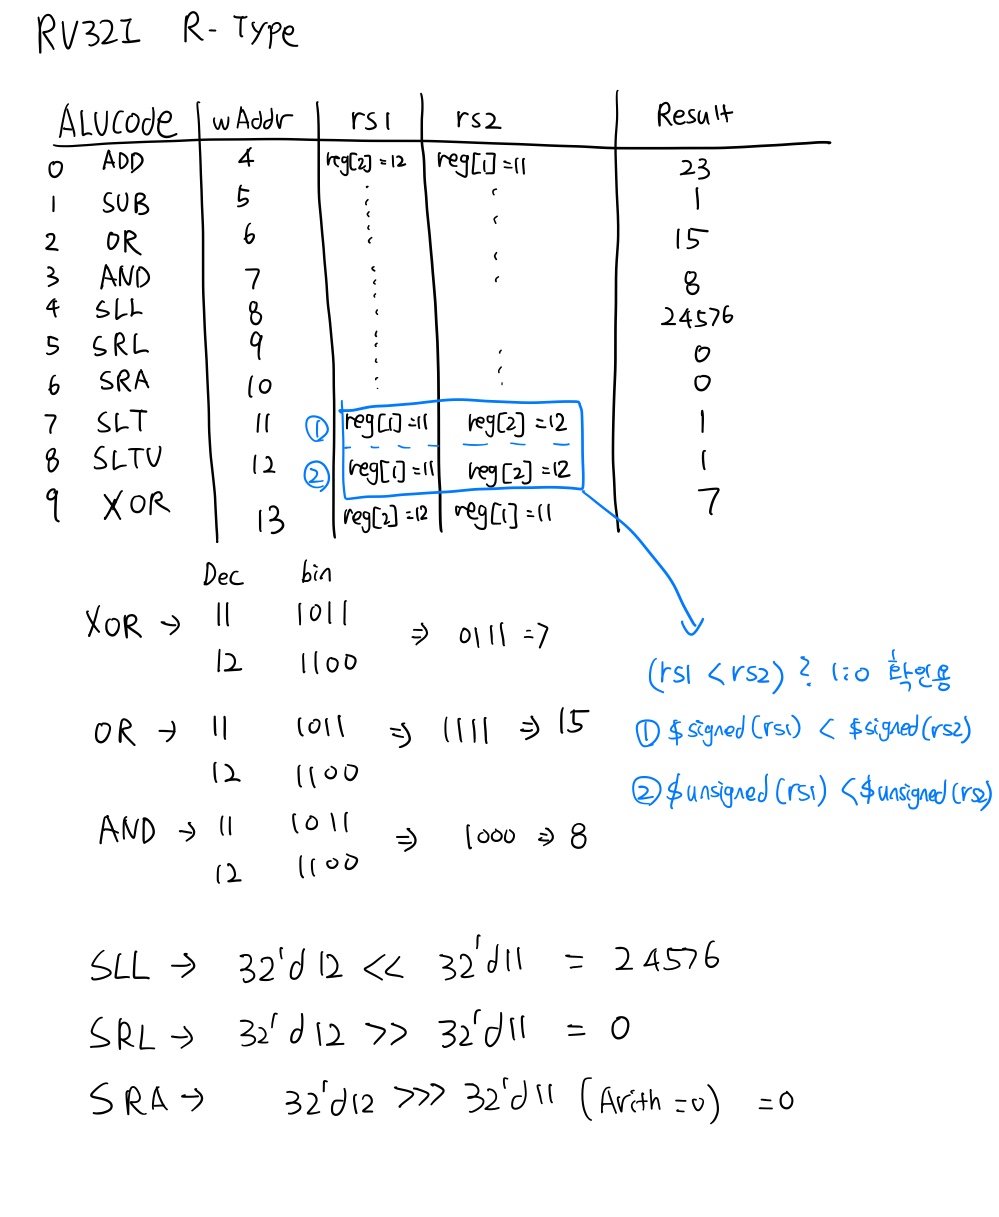 RV32I R-Type
ALUCode wAddr rs1 rs2 Result
0 ADD 4 reg[2]=12 reg[1]=11 23
1 SUB 5 1
2 OR 6 15
3 AND 7 8
4 SLL 8 24576
5 SRL 9 0
6 SRA 10 0
7 SLT 11 ① reg[1]=11 reg[2]=12 1
8 SLTU 12 ② reg[1]=11 reg[2]=12 1
9 XOR 13 reg[2]=12 reg[1]=11 7
Dec bin
XOR → 11 1011 ⇒ 0111 = 7
12 1100
(rs1 < rs2) ? 1:0 확인용
OR → 11 1011 ⇒ 1111 ⇒ 15
12 1100
① $signed(rs1) < $signed(rs2)
② $unsigned(rs1) < $unsigned(rs2)
AND → 11 1011 ⇒ 1000 ⇒ 8
12 1100
SLL → 32'd12 << 32'd11 = 24576
SRL → 32'd12 >> 32'd11 = 0
SRA → 32'd12 >>> 32'd11 (Arith=0) =0